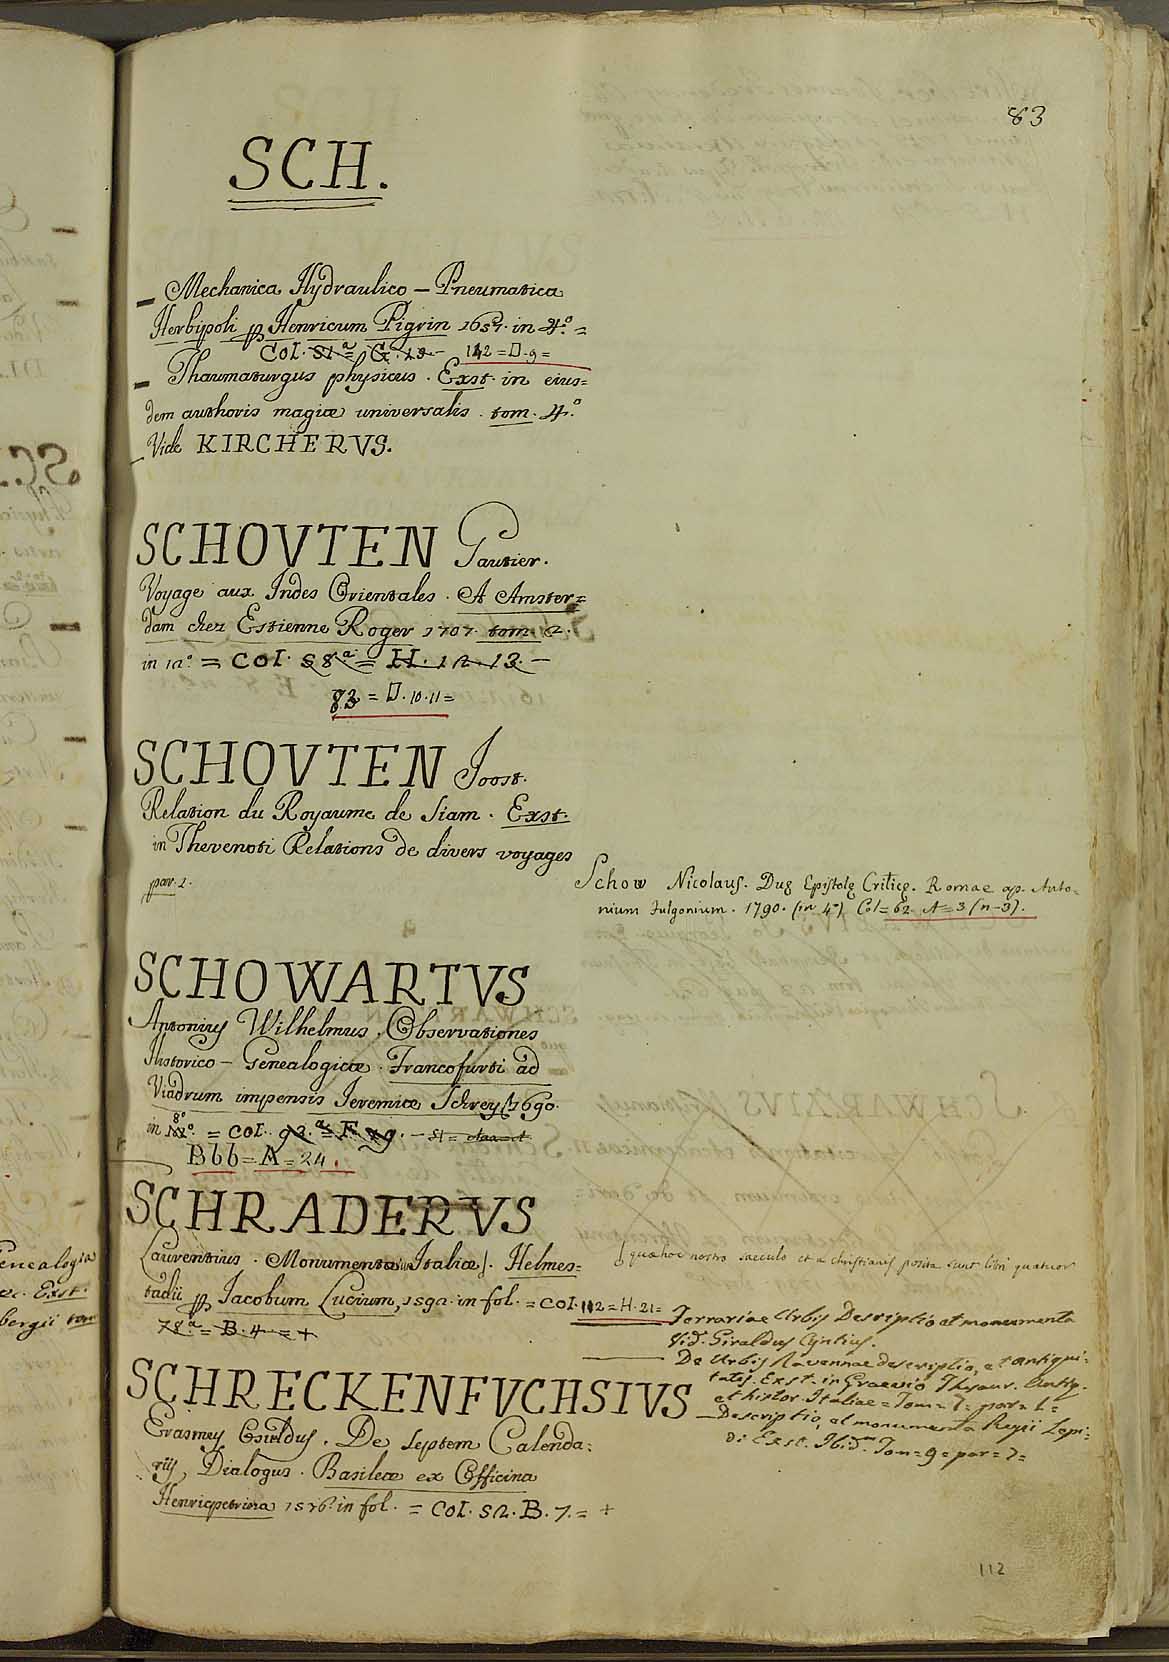 83
SCH.
– Mechanica Hydraulico – Pneumatica
Herbipoli p Henricum Pigrin 1657. in 4.º =
Col. 51ª = G. 19. – 142 = D. 9 =
– Thaumaturgus physicus. Exst. in eius=
dem authoris magiæ universalis. tom. 4.º
Vide KIRCHERVS.
SCHOVTEN Gautier.
Voyage aux Indes Orientales. A Amster=
dam chez Estienne Roger 1707. tom. 2.
in 12º = Col. 58.ª = H. 12. 13. –
83 = D. 10. 11 =
SCHOVTEN Joost.
Relation du Royaume de Siam. Exst.
in Thevenoti Relations de divers voyages
par. 1.
Schow Nicolaus. Duę Epistolę Criticę. Romae ap. Anto=
nium Fulgonium. 1790. (in 4º) Col = 62. A = 3 (n-9).
SCHOWARTVS
Antonius Wilhelmus. Observationes
Historico – Genealogicæ. Francofurti ad
Viadrum impensis Ieremiæ Schrey 1690.
in 8º. = Col. 92.ª = F. 29. –
Bbb = A = 24.
SCHRADERVS
Laurentius. Monumentorum Italiæ. Helmes=
tadii p Iacobum Lucium, 1592. in fol. = Col. 112 = H. 21 =
78.ª = B. 4 = +
quæ hoc nostro saeculo et a christianis posita sunt libri quatuor
Ferrariae Urbis Descriptio et monumenta
Vid. Giraldus Cyntius.
– De Urbis Ravennae descriptio, et antiqui=
tates. Exst. in Graevio Thesaur. Antiq.
et histor. Italiae = Tom = 7 = par = 1 =
– Descriptio, et monumenta Regii Lepi=
di Exst. Ibid.m Tom = 9 = par = 7 =
SCHRECKENFVCHSIVS
Erasmus Osualdus. De septem Calenda=
rijs, Dialogus. Basileæ ex Officina
Henricpetrina 1576. in fol. = Col. 52. B. 7. = +
112